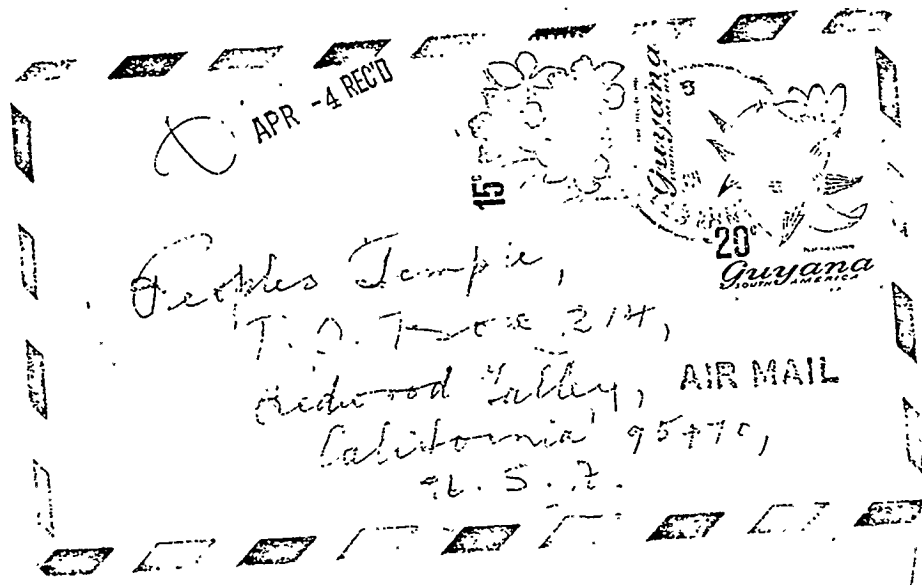 APR -4 REC'D
15¢
Guyana
20¢
Guyana
SOUTH AMERICA
Peoples Temple,
P.O. Box 214,
Redwood Valley,
AIR MAIL
California 95470,
U.S.A.